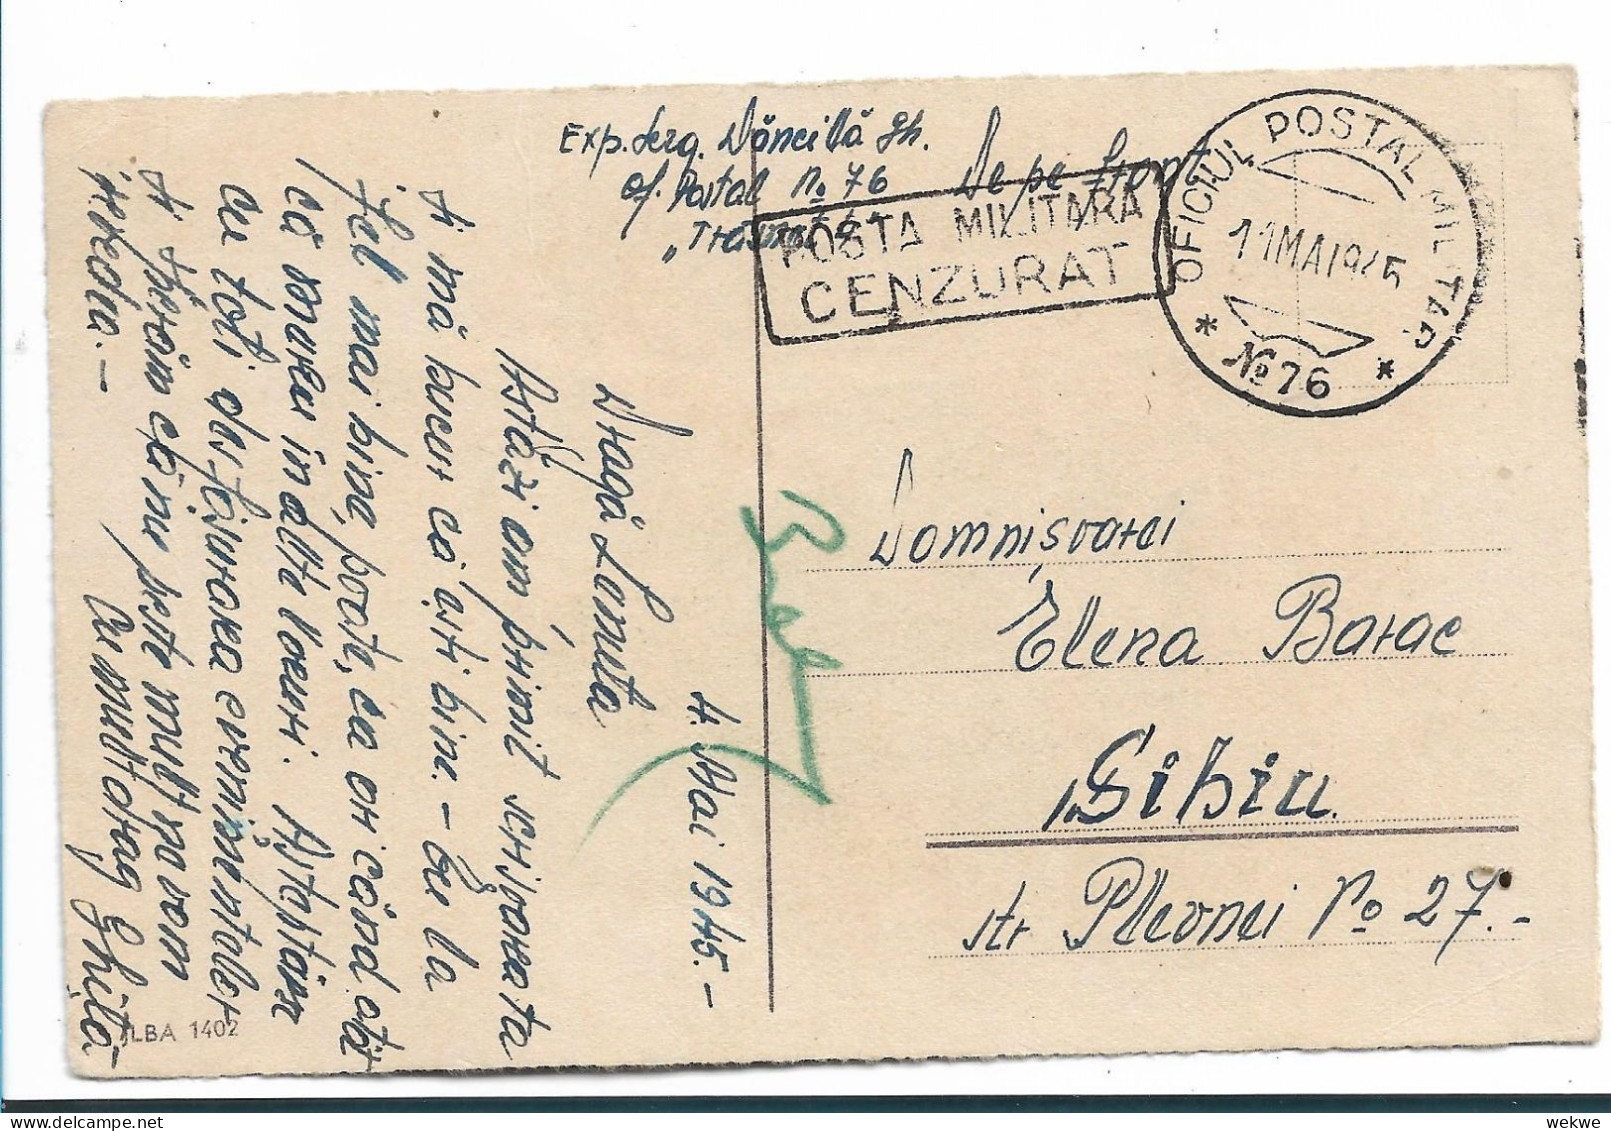 Exp. Serg. Dăncilă Gh.
of. Postal No 76 De pe front
POSTA MILITARA
CENZURAT
OFICIUL POSTAL MILITAR
11 MAI 945
* No 76 *
4. Mai 1945.-
Dragă Lenuța
Astăzi am primit scrisoarea ta
și mă bucur că ești bine. - Eu la
fel mai bine, poate, ca ori când atât
că suntem în alte locuri. Așteptăm
cu toți desfășurarea evenimentelor
și sperăm că nu peste mult ne vom
vedea. -
Cu mult drag Ghiță
Domnișoarei
Elena Barac
"Sibiu.
str Plevnei No 27.-
LBA 1402
wekwe